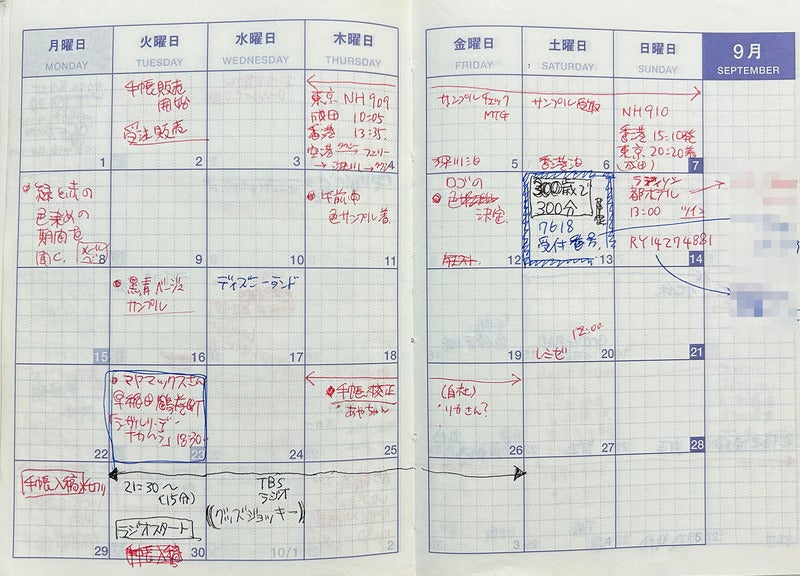 月曜日 火曜日 水曜日 木曜日 金曜日 土曜日 日曜日 9月
MONDAY TUESDAY WEDNESDAY THURSDAY FRIDAY SATURDAY SUNDAY SEPTEMBER
1
手帳販売
開始
受注販売
2
3
東京 NH909
成田 10:05
香港 13:35
空港 フェリー
4
サンプルチェック
MTG
深川泊
5
サンプル受取
香港泊
6
NH910
香港 15:10発
東京 20:20着
(成田)
7
緑と赤の
色染めの
期間を
聞く。
8
9
10
午前中
色サンプル着
11
ロゴの
決定
12
300歳で
300分
7618
受付番号
13
都ホテル
13:00 ツイン
RY14274881
14
15
黒青ベージュ
サンプル
16
ディズニーランド
17
18
19
12:00
レミゼ
20
21
22
マヤマックスさん
早稲田鶴巻町
18:30
23
24
手帳校正
あやちゃん
25
(自社)
りかさん?
26
27
28
手帳入稿
29
21:30〜
(15分)
ラジオスタート
手帳入稿
30
TBS
ラジオ
((グッズジョッキー))
10/1
2
3
4
5